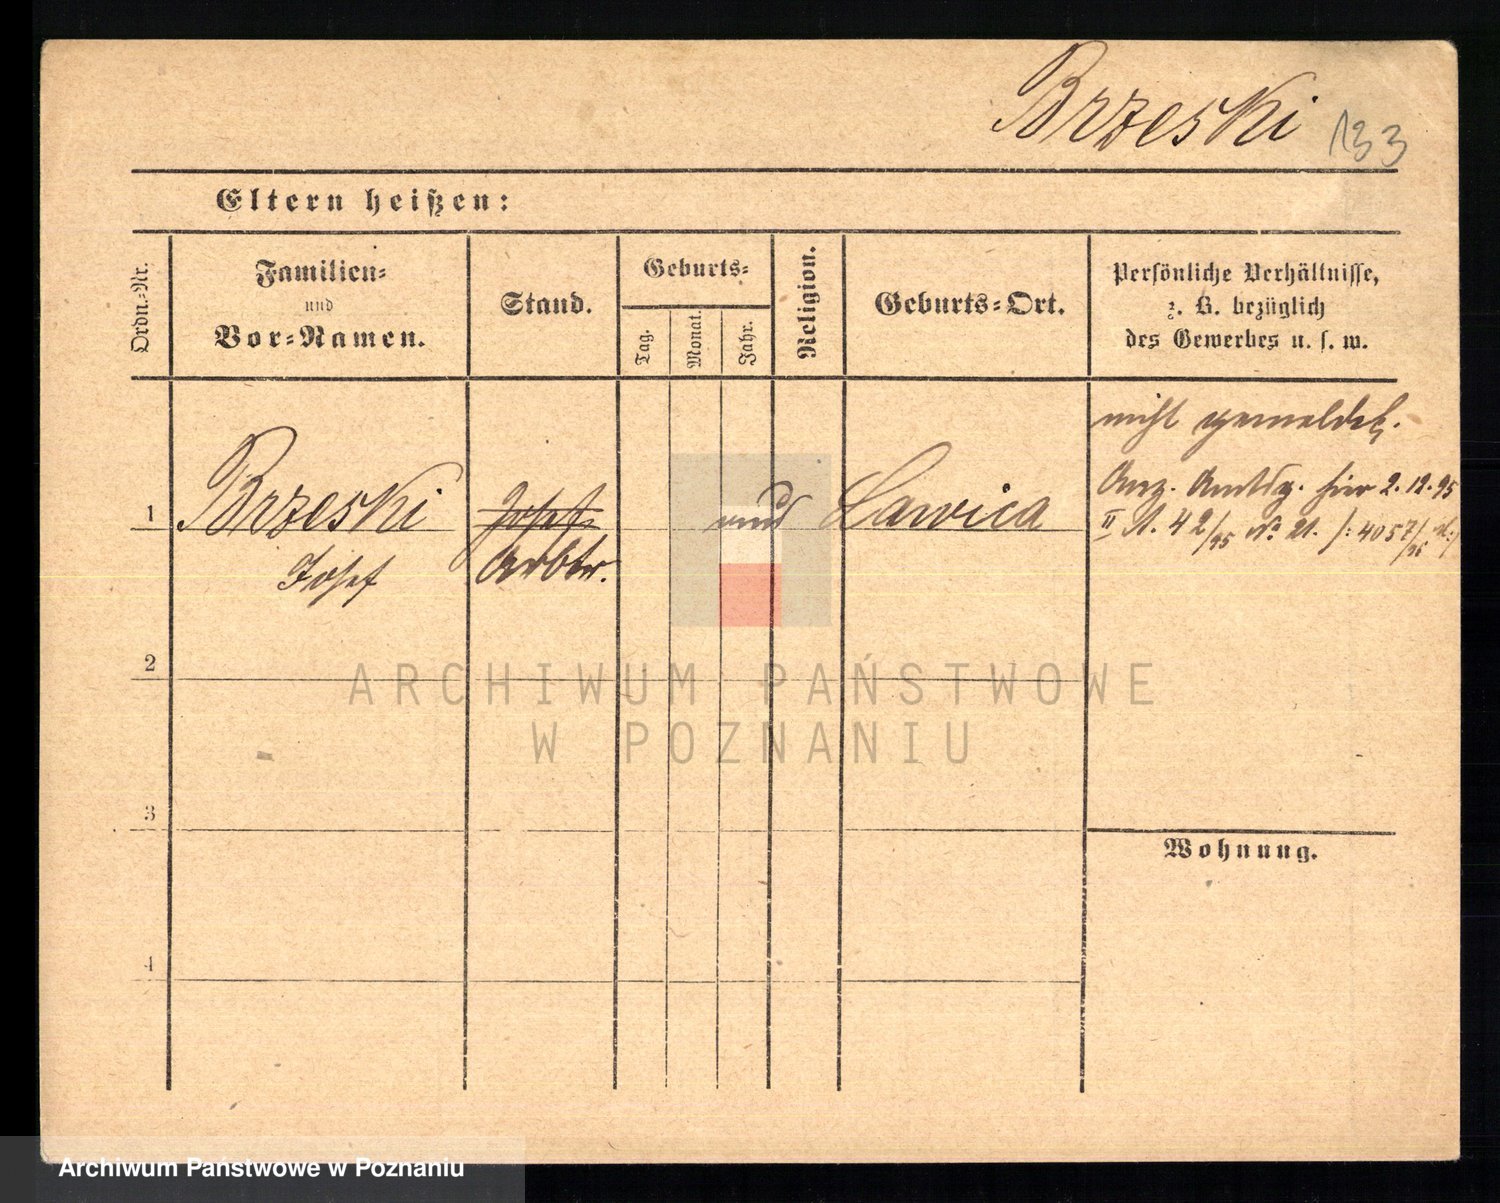 Brzeski 133
Eltern heißen:
Ordn.-Nr.
Familien-
und
Vor-Namen.
Stand.
Geburts-
Tag.
Monat.
Jahr.
Religion.
Geburts-Ort.
Persönliche Verhältnisse,
z. B. bezüglich
des Gewerbes u. s. w.
nicht gemeldet.
1 Brzeski Josef aus Lawica
Josef Arbtr.
Anz. Amtsg. hier 2.12.95
II A. 42/95 No 21. /: 4057/95 :/
2
3
Wohnung.
4
ARCHIWUM PAŃSTWOWE
W POZNANIU
Archiwum Państwowe w Poznaniu